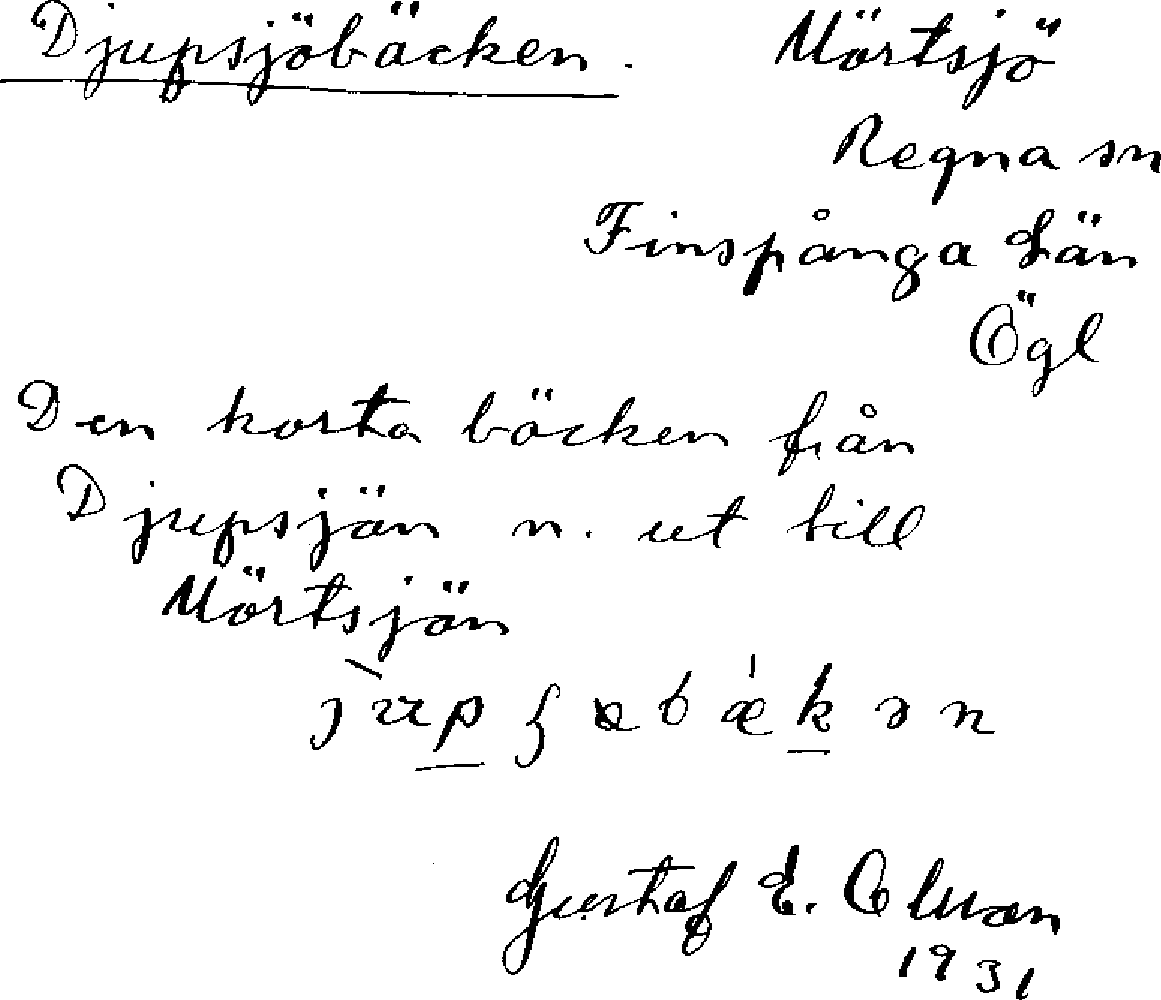 Djupsjöbäcken. Mörtsjö
Regna sn
Finspånga Län
Ögl
Den korta bäcken från
Djupsjön n. ut till
Mörtsjön
Gustaf E.
1931